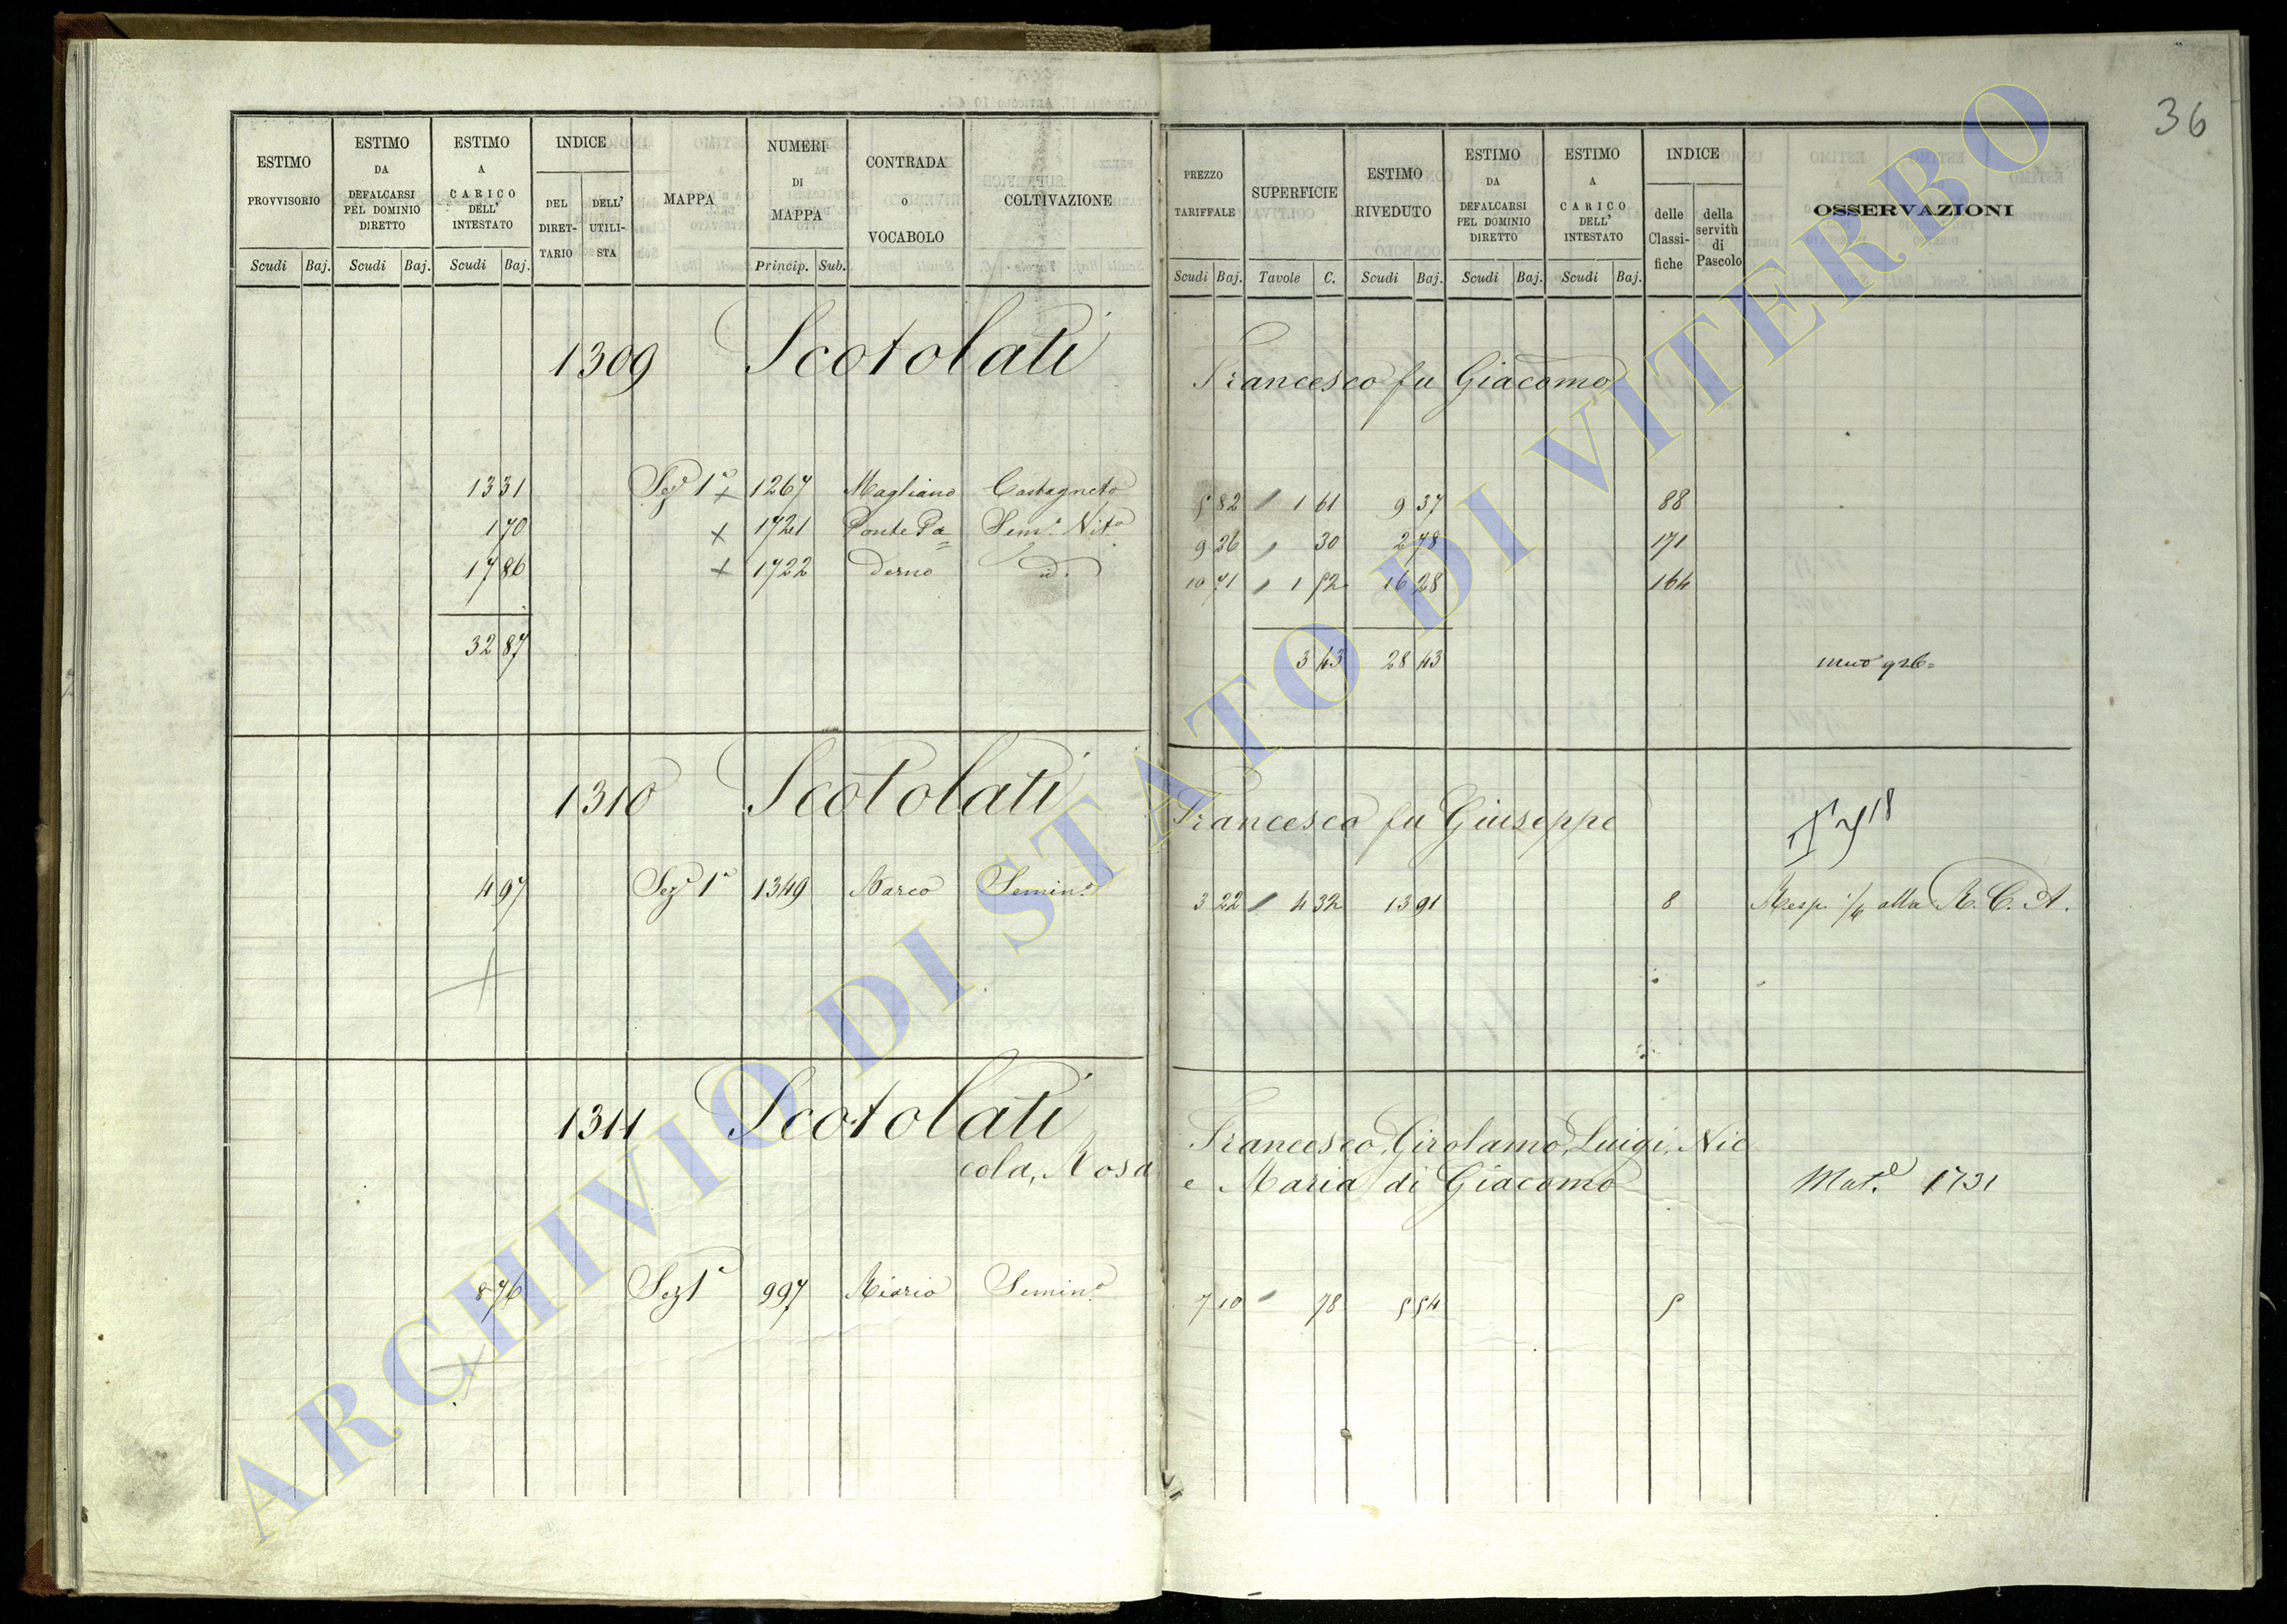 36
ESTIMO PROVVISORIO | ESTIMO DA DEFALCARSI PEL DOMINIO DIRETTO | ESTIMO A CARICO DELL' INTESTATO | INDICE DEL DIRET-TARIO | DELL' UTILI-STA | MAPPA | NUMERI DI MAPPA | CONTRADA O VOCABOLO | COLTIVAZIONE | PREZZO TARIFFALE | SUPERFICIE | ESTIMO RIVEDUTO | ESTIMO DA DEFALCARSI PEL DOMINIO DIRETTO | ESTIMO A CARICO DELL' INTESTATO | INDICE delle Classi-fiche | della servitù di Pascolo | OSSERVAZIONI
Scudi Baj. Scudi Baj. Scudi Baj. Princip. Sub. Scudi Baj. Tavole C. Scudi Baj. Scudi Baj. Scudi Baj.
1309 Scotolati Francesco fu Giacomo
13 31 Sez.e 1a + 1267 Magliano Castagneto 5 82 1 61 9 37 88
1 70 + 1721 Ponte Pa= Sem.o Vit.o 9 26 30 2 78 171
17 86 + 1722 derno id. 10 71 1 52 16 28 164
32 87 3 43 28 43
1310 Scotolati Francesco fu Giuseppe
4 97 Sez.e 1a 1349 Marco Semin.o 3 22 4 32 13 91 8 Resp. 1/4 alla R. C. A.
1311 Scotolati Francesco, Girolamo, Luigi, Nic
cola, Rosa e Maria di Giacomo Mat.e 1731
8 76 Sez 1a 997 Riorio Semin.o 7 10 78 5 54 5
ARCHIVIO DI STATO DI VITERBO